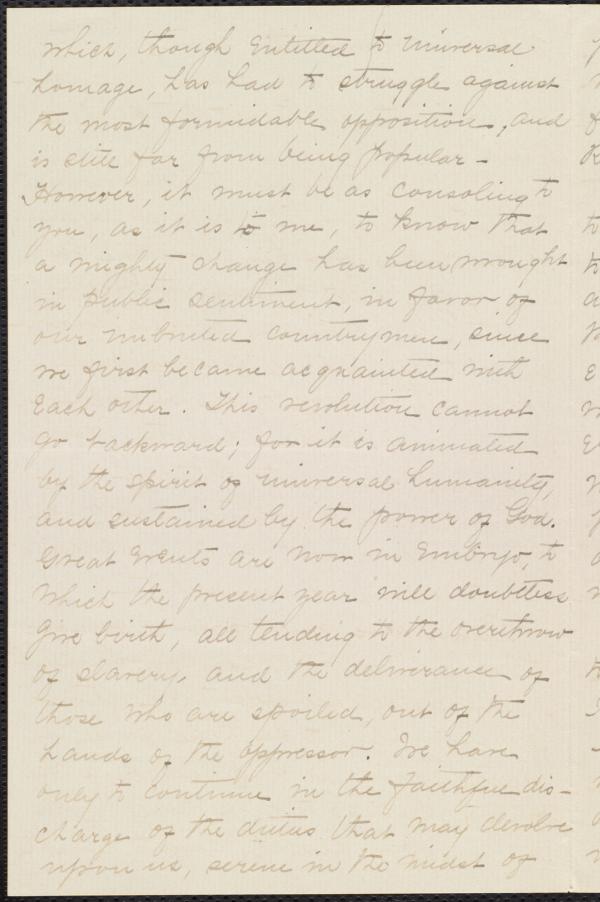 which, though entitled to universal
homage, has had to struggle against
the most formidable opposition, and
is still far from being popular -
However, it must be as consoling to
you, as it is to me, to know that
a mighty change has been wrought
in public sentiment, in favor of
our imbruted countrymen, since
we first became acquainted with
each other. This revolution cannot
go backward; for it is animated
by the spirit of universal humanity,
and sustained by the power of God.
Great events are now in embryo, to
which the present year will doubtless
give birth, all tending to the overthrow
of slavery, and the deliverance of
those who are spoiled, out of the
hands of the oppressor. We have
only to continue in the faithful dis-
charge of the duties that may devolve
upon us, serene in the midst of